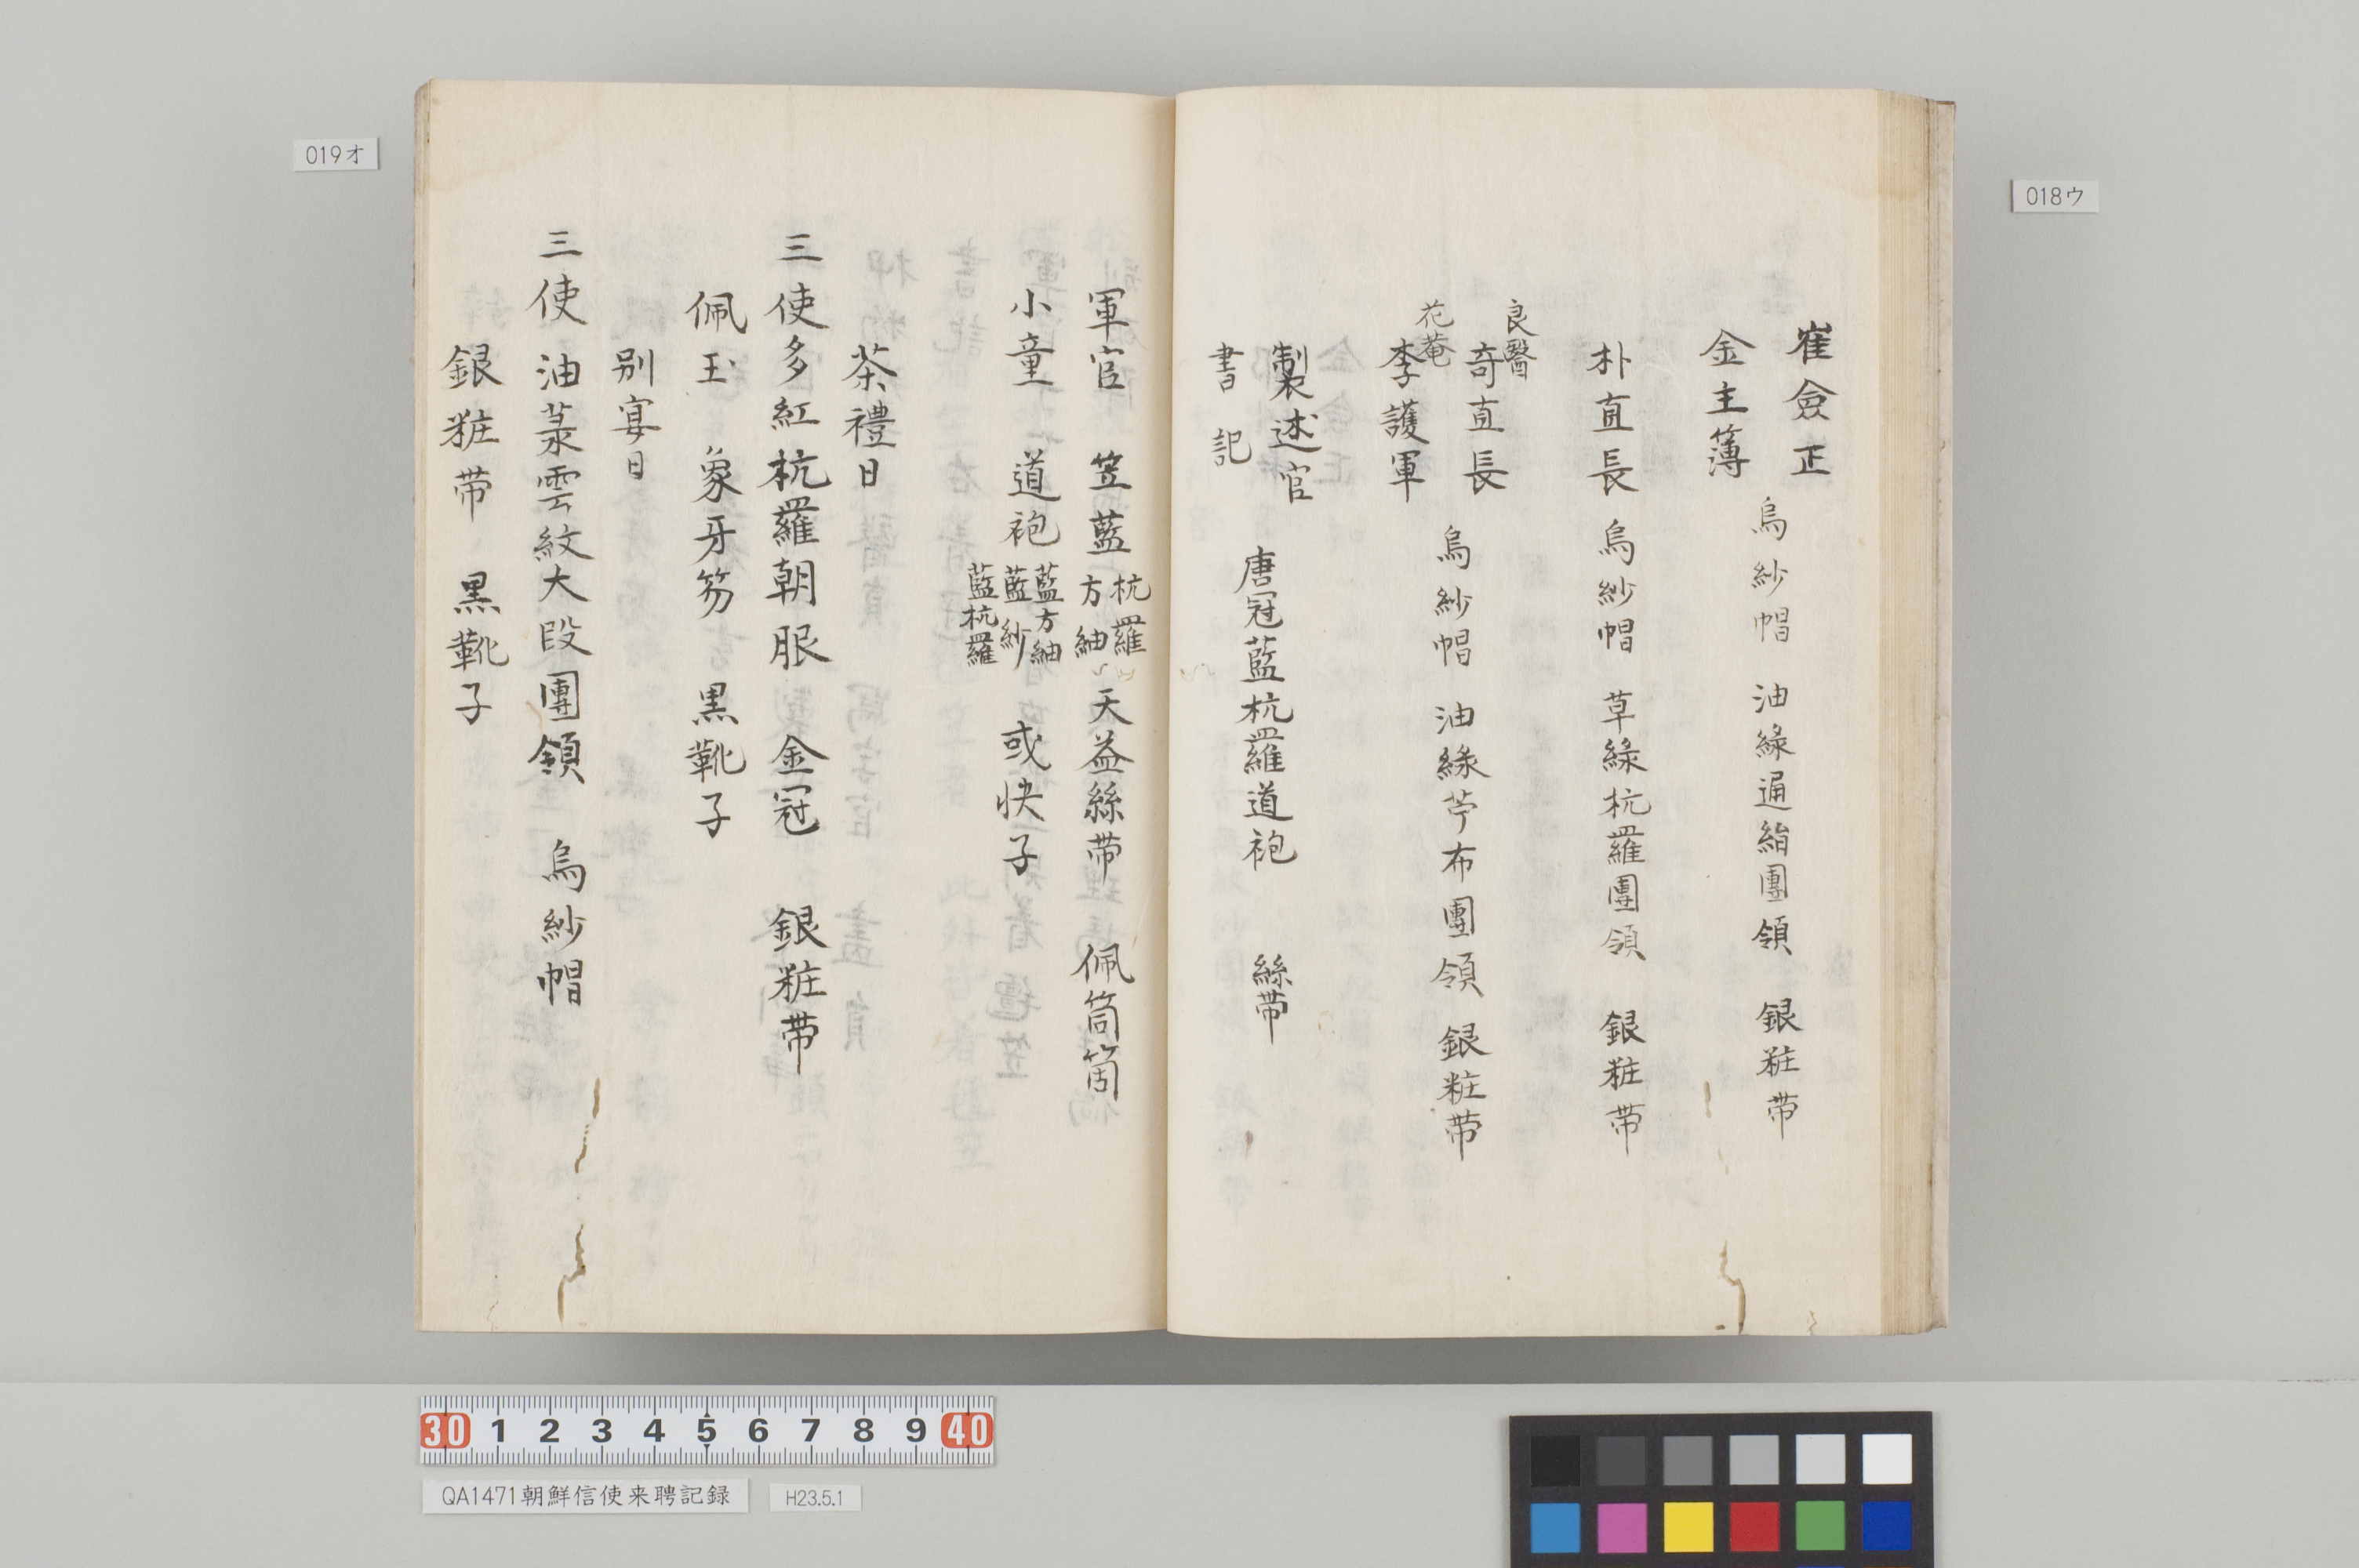 崔僉正
金主薄
烏紗帽 油綠通絹團領 銀粧帶
朴直長 烏紗帽 草綠杭羅團領 銀粧帶
良醫
奇直長
花菴
李護軍
烏紗帽 油綠苧布團領 銀粧帶
製述官
書記
唐冠藍杭羅道袍 絲帶
軍官 笠藍 杭羅 方紬 天益絲帶 佩筒箇
小童 道袍 藍方紬 藍紗 藍杭羅 或快子
茶禮日
三使多紅杭羅朝服 金冠 銀粧帶
佩玉 象牙笏 黒靴子
別宴日
三使 油菉雲紋大段團領 烏紗帽
銀粧帶 黒靴子
019オ
018ウ
30 1 2 3 4 5 6 7 8 9 40
QA1471朝鮮信使来聘記録
H23.5.1